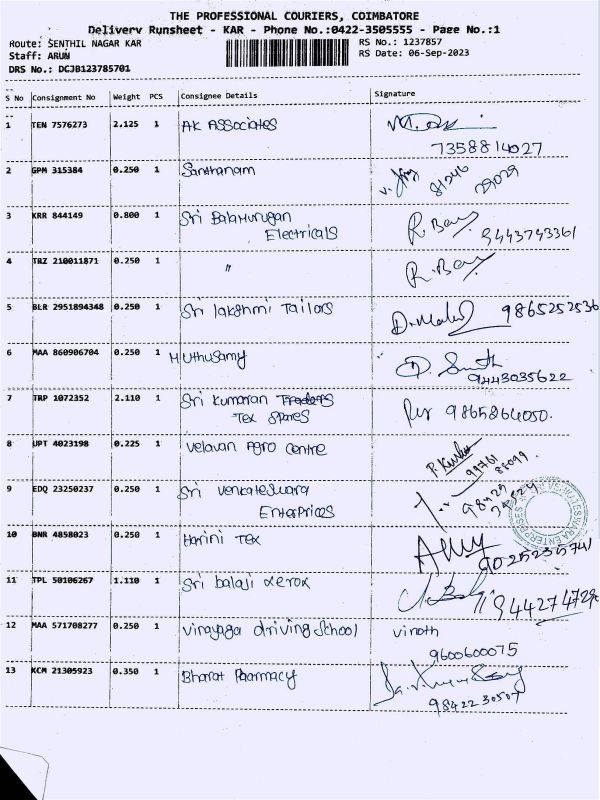 THE PROFESSIONAL COURIERS, COIMBATORE
Delivery Runsheet - KAR - Phone No.:0422-3505555 - Page No.:1
Route: SENTHIL NAGAR KAR RS No.: 1237857
Staff: ARUN RS Date: 06-Sep-2023
DRS No.: DCJB123785701
S No Consignment No Weight PCS Consignee Details Signature
1 TEN 7576273 2.125 1 AK Associates
7358814027
2 GPM 315384 0.250 1 Santhanam 81246 29029
3 KRR 844149 0.800 1 Sri Balamurugan
Electricals 9443743361
4 TRZ 210011871 0.250 1 "
5 BLR 2951894348 0.250 1 Sri lakshmi Tailors 9865252536
6 MAA 860906704 0.250 1 Muthusamy
9443035622
7 TRP 1072352 2.110 1 Sri Kumaran Traders 9865864050.
Tex Spares
8 UPT 4023198 0.225 1 Velavan Agro Centre
99761 88099
9 EDQ 23250237 0.250 1 Sri Venkateswara
Enterprices
10 BNR 4858023 0.250 1 Harini Tex
9025235741
11 TPL 50106267 1.110 1 Sri balaji xerox
12 MAA 571708277 0.250 1 Vinayaga driving School Vinoth
9600600075
13 KCM 21305923 0.350 1 Bharat Pharmacy
9842230507